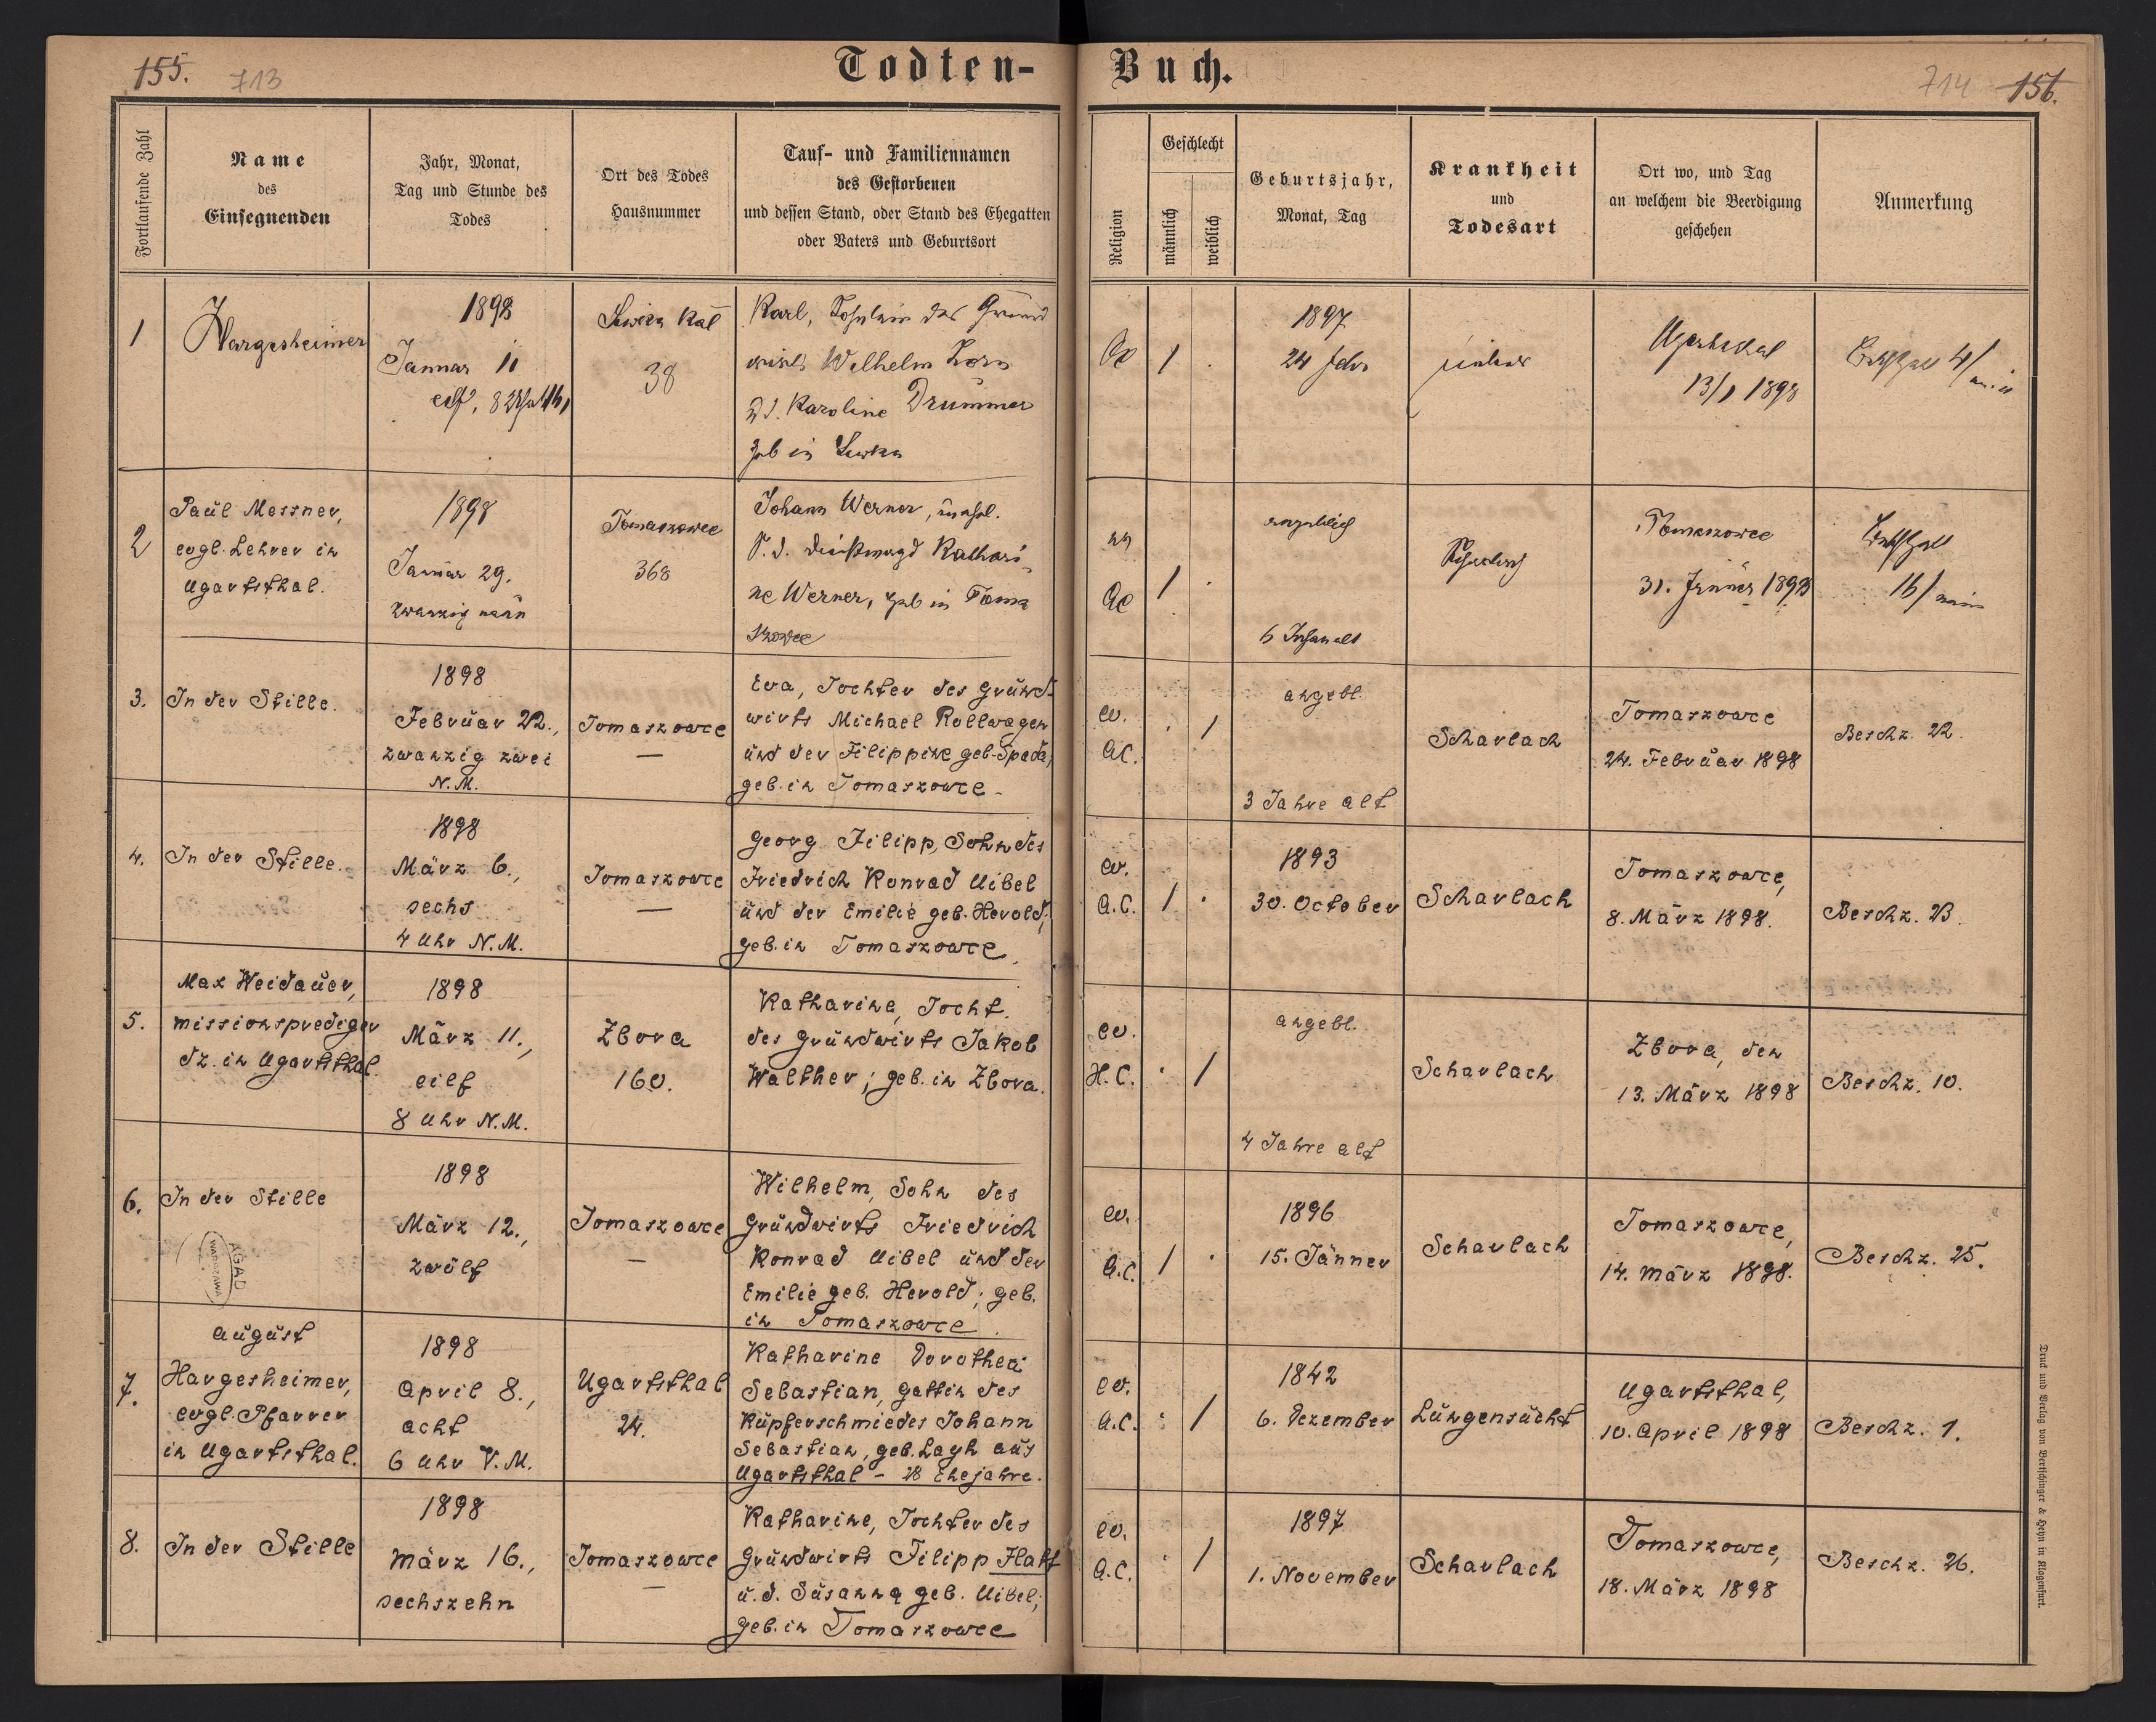 155.
713
Todten-
Fortlaufende Zahl
Name
des
Einsegnenden
Jahr, Monat,
Tag und Stunde des
Todes
Ort des Todes
Hausnummer
Tauf- und Familiennamen
des Gestorbenen
und dessen Stand, oder Stand des Ehegatten
oder Vaters und Geburtsort
1
Hargesheimer
1898
Januar 11
eilf, 8
38
Karl,
Wilhelm Horn
Karoline Drummer
geb in
2
Paul Messner,
evgl. Lehrer in
Ugartsthal.
1898
Januar 29.
zwanzig neun
Tomaszowce
368
Johann Werner,
Kathari-
ne Werner, geb in Toma
szowce
3.
In der Stille.
1898
Februar 22.,
zwanzig zwei
N.M.
Tomaszowce
—
Eva, Tochter des Grund-
wirts Michael Rollwagen
und der Filippine geb. Spada;
geb. in Tomaszowce.
4.
In der Stille.
1898
März 6.,
sechs
4 Uhr N.M.
Tomaszowce
—
Georg Filipp, Sohn des
Friedrich Konrad Uibel
und der Emilie geb. Herold;
geb. in Tomaszowce.
5.
Max Weidauer,
Missionsprediger
dz. in Ugartsthal.
1898
März 11.,
eilf
8 Uhr N.M.
Zbora
160.
Katharine, Tocht.
des Grundwirts Jakob
Walther; geb. in Zbora.
6.
In der Stille
AGAD
WARSZAWA
1898
März 12.,
zwölf
Tomaszowce
—
Wilhelm, Sohn des
Grundwirts Friedrich
Konrad Uibel und der
Emilie geb. Herold; geb.
in Tomaszowce.
7.
August
Hargesheimer,
evgl. Pfarrer
in Ugartsthal.
1898
April 8.,
acht
6 Uhr V.M.
Ugartsthal
24.
Katharine Dorothea
Sebastian, Gattin des
Kupferschmiedes Johann
Sebastian, geb. Layh aus
Ugartsthal - 28 Ehejahre.
8.
In der Stille
1898
März 16.,
sechszehn
Tomaszowce
—
Katharine, Tochter des
Grundwirts Filipp
u. d. Susanna geb. Uibel;
geb. in Tomaszowce
Buch.
714
156.
Religion
Geschlecht
männlich
weiblich
Geburtsjahr,
Monat, Tag
Krankheit
und
Todesart
Ort wo, und Tag
an welchem die Beerdigung
geschehen
Anmerkung
1
1897
Ugartsthal
13/1 1898
angeblich
6 Jahr alt
Scharlach
Tomaszowce
31. Jänner 1898
ev.
A.C.
/
angebl.
3 Jahre alt
Scharlach
Tomaszowce
24. Februar 1898
Beschz. 22.
ev.
A.C.
/
1893
30. October
Scharlach
Tomaszowce,
8. März 1898.
Beschz. 23.
ev.
H.C.
/
angebl.
4 Jahre alt
Scharlach
Zbora, den
13. März 1898
Beschz. 10.
ev.
A.C.
/
1896
15. Jänner
Scharlach
Tomaszowce,
14. März 1898.
Beschz. 25.
ev.
A.C.
/
1842
6. Dezember
Lungensucht
Ugartsthal,
10. April 1898
Beschz. 1.
ev.
A.C.
/
1897
1. November
Scharlach
Tomaszowce,
18. März 1898
Beschz. 26.
Druck und Verlag von Bertschinger & Heyn in Klagenfurt.